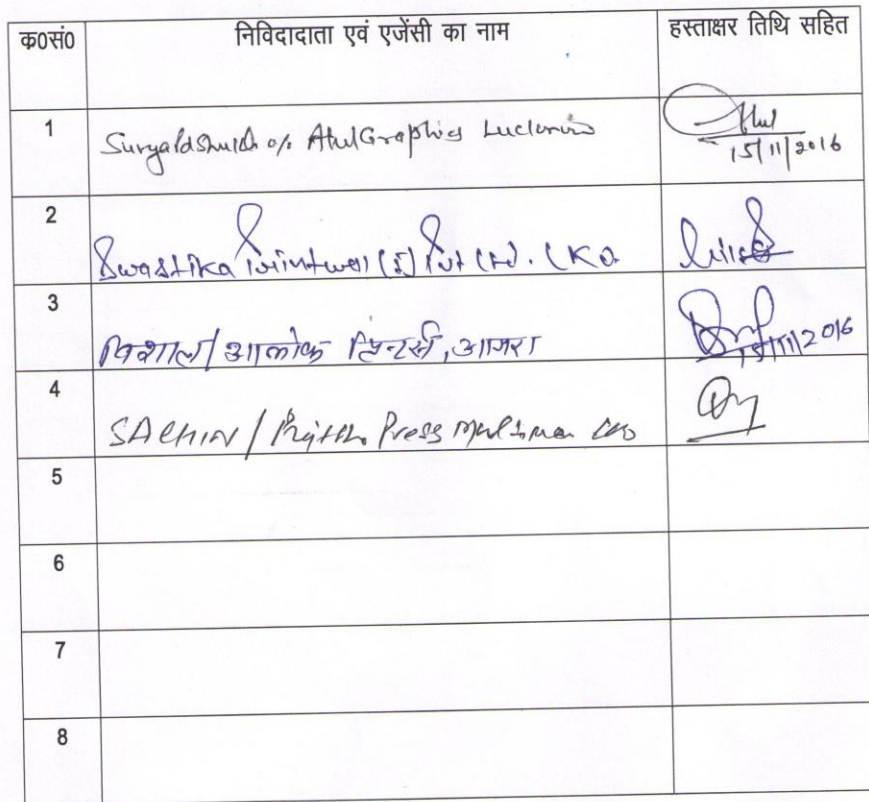 क0सं0 निविदादाता एवं एजेंसी का नाम हस्ताक्षर तिथि सहित
1 o/o Atul Graphics Lucknow 15/11/2016
2 Swastika Printwell (I) Pvt Ltd. LKO.
3 विशाल/आलोक प्रिन्टर्स, आगरा 15/11/2016
4 SACHIN / Press
5
6
7
8